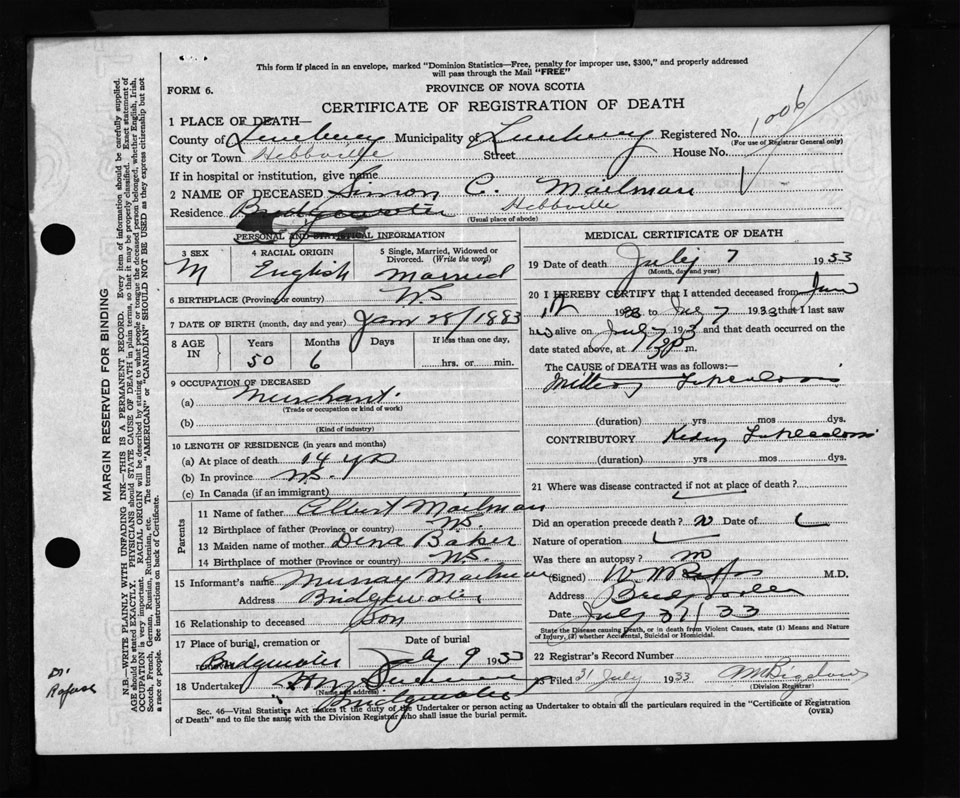 This form if placed in an envelope, marked "Dominion Statistics—Free, penalty for improper use, $300," and properly addressed
will pass through the Mail "FREE"
FORM 6.
PROVINCE OF NOVA SCOTIA
CERTIFICATE OF REGISTRATION OF DEATH
1 PLACE OF DEATH—
County of Lunenburg Municipality of Lunenburg Registered No. 1006
(For use of Registrar General only)
City or Town Hebbville Street House No.
If in hospital or institution, give name
2 NAME OF DECEASED Simon C. Mailman
Residence Bridgewater Hebbville
(Usual place of abode)
PERSONAL AND STATISTICAL INFORMATION
3 SEX 4 RACIAL ORIGIN 5 Single, Married, Widowed or Divorced. (Write the word)
M English Married
6 BIRTHPLACE (Province or country) N.S.
7 DATE OF BIRTH (month, day and year) Jan 28/1883
8 AGE IN Years Months Days If less than one day,
50 6 hrs. or min.
9 OCCUPATION OF DECEASED
(a) Merchant.
(Trade or occupation or kind of work)
(b)
(Kind of industry)
10 LENGTH OF RESIDENCE (in years and months)
(a) At place of death 14 yrs
(b) In province N.S.
(c) In Canada (if an immigrant)
Parents
11 Name of father Albert Mailman
12 Birthplace of father (Province or country) N.S.
13 Maiden name of mother Dena Baker
14 Birthplace of mother (Province or country) N.S.
15 Informant's name Murray Mailman
Address Bridgewater
16 Relationship to deceased Son
17 Place of burial, cremation or Date of burial
Bridgewater July 9 1933
18 Undertaker
(Name and address)
Bridgewater
MEDICAL CERTIFICATE OF DEATH
19 Date of death July 7 1933
(Month, day and year)
20 I HEREBY CERTIFY that I attended deceased from June
1933 to July 7 1933 that I last saw
him alive on July 7 193 and that death occurred on
date stated above, at m.
The CAUSE of DEATH was as follows:—
Miliary Tuberculosis
(duration) yrs mos dys.
CONTRIBUTORY Kidney Tuberculosis
(duration) yrs mos dys.
21 Where was disease contracted if not at place of death?
Did an operation precede death? Date of
Nature of operation
Was there an autopsy?
(Signed) M.D.
Address Bridgewater
Date July 31/33
State the Disease causing Death, or in death from Violent Causes, state (1) Means and Nature of Injury, (2) whether Accidental, Suicidal or Homicidal.
22 Registrar's Record Number
23 Filed 31 July 1933
(Division Registrar)
Sec. 46—Vital Statistics Act makes it the duty of the Undertaker or person acting as Undertaker to obtain all the particulars required in the "Certificate of Registration
of Death" and to file the same with the Division Registrar who shall issue the burial permit. (OVER)
MARGIN RESERVED FOR BINDING
N.B.—WRITE PLAINLY WITH UNFADING INK—THIS IS A PERMANENT RECORD. Every item of information should be carefully supplied.
AGE should be stated EXACTLY. PHYSICIANS should STATE CAUSE OF DEATH in plain terms, so that it may be properly classified. Exact statement of
OCCUPATION is very important. RACIAL ORIGIN will be described by stating to what people or tongue the deceased person belonged, whether English, Irish,
Scotch, French, German, Russian, Ruthenian, etc. The terms "AMERICAN" or "CANADIAN" SHOULD NOT BE USED as they express citizenship but not
a race or people. See instructions on back of Certificate.
Dr
Rafuse